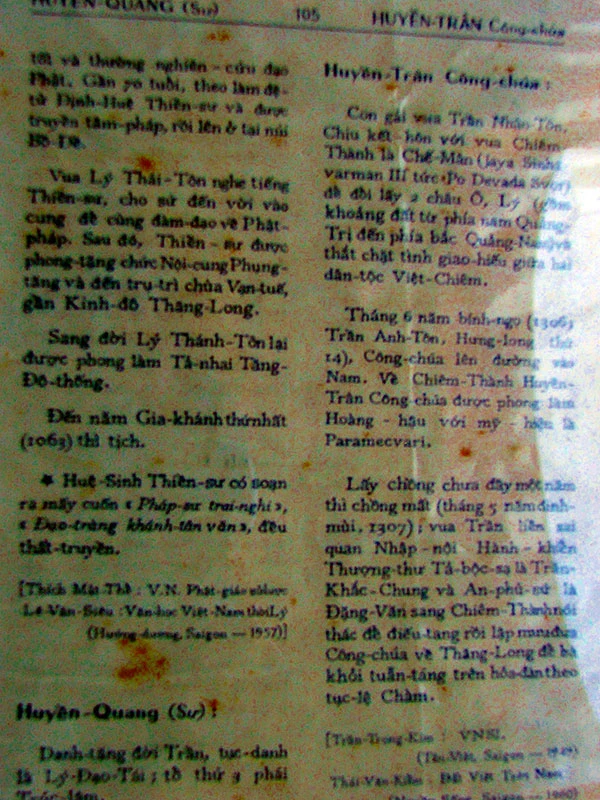 HUYỀN-QUANG (Sư)
105
HUYỀN-TRÂN Công-chúa
tốt và thường nghiên-cứu đạo
Phật. Gần 70 tuổi, theo làm đệ-
tử Định-Huệ Thiền-sư và được
truyền tâm-pháp, rồi lên ở tại núi
Bồ-Đề.
Vua Lý Thái-Tôn nghe tiếng
Thiền-sư, cho sứ đến vời vào
cung để cùng đàm-đạo về Phật-
pháp. Sau đó, Thiền-sư được
phong-tăng chức Nội-cung Phụng-
tăng và đến trụ-trì chùa Vạn-tuế,
gần Kinh-đô Thăng-Long.
Sang đời Lý Thánh-Tôn lại
được phong làm Tả-nhai Tăng-
Đô-thống.
Đến năm Gia-khánh thứ nhất
(1063) thì tịch.
★ Huệ-Sinh Thiền-sư có soạn
ra mấy cuốn « Pháp-sự trai-nghi »,
« Đạo-tràng khánh-tán văn », đều
thất-truyền.
[Thích Mật-Thể : V.N. Phật-giáo sử lược
Lê-Văn-Siêu : Văn-học Việt-Nam thời Lý
(Hướng-dương, Saigon — 1957)]
Huyền-Quang (Sư) :
Danh-tăng đời Trần, tục-danh
là Lý-Đạo-Tái ; tổ thứ 3 phái
Trúc-lâm.
Huyền-Trân Công-chúa :
Con gái vua Trần Nhân-Tôn.
Chịu kết-hôn với vua Chiêm-
Thành là Chế-Mân (Jaya Sinha-
varman III tức Po Devada Svor)
để đổi lấy 2 châu Ô, Lý (gồm
khoảng đất từ phía nam Quảng-
Trị đến phía bắc Quảng-Nam) và
thắt chặt tình giao-hiếu giữa hai
dân-tộc Việt-Chiêm.
Tháng 6 năm bính-ngọ (1306,
Trần Anh-Tôn, Hưng-long thứ
14), Công-chúa lên đường vào
Nam. Về Chiêm-Thành Huyền-
Trân Công-chúa được phong làm
Hoàng-hậu với mỹ-hiệu là
Paramecvari.
Lấy chồng chưa đầy một năm
thì chồng mất (tháng 5 năm đinh-
mùi, 1307) ; vua Trần liền sai
quan Nhập-nội Hành-khiển
Thượng-thư Tả-bộc-sạ là Trần-
Khắc-Chung và An-phủ-sứ là
Đặng-Văn sang Chiêm-Thành nói
thác để điếu-tang rồi lập mưu đưa
Công-chúa về Thăng-Long để bà
khỏi tuẫn-táng trên hỏa-đàn theo
tục-lệ Chàm.
[Trần-Trọng-Kim : VNSL
(Tân-Việt, Saigon — 1949)
Thái-Văn-Kiểm : Đất Việt Trời Nam
Saigon — 1960)